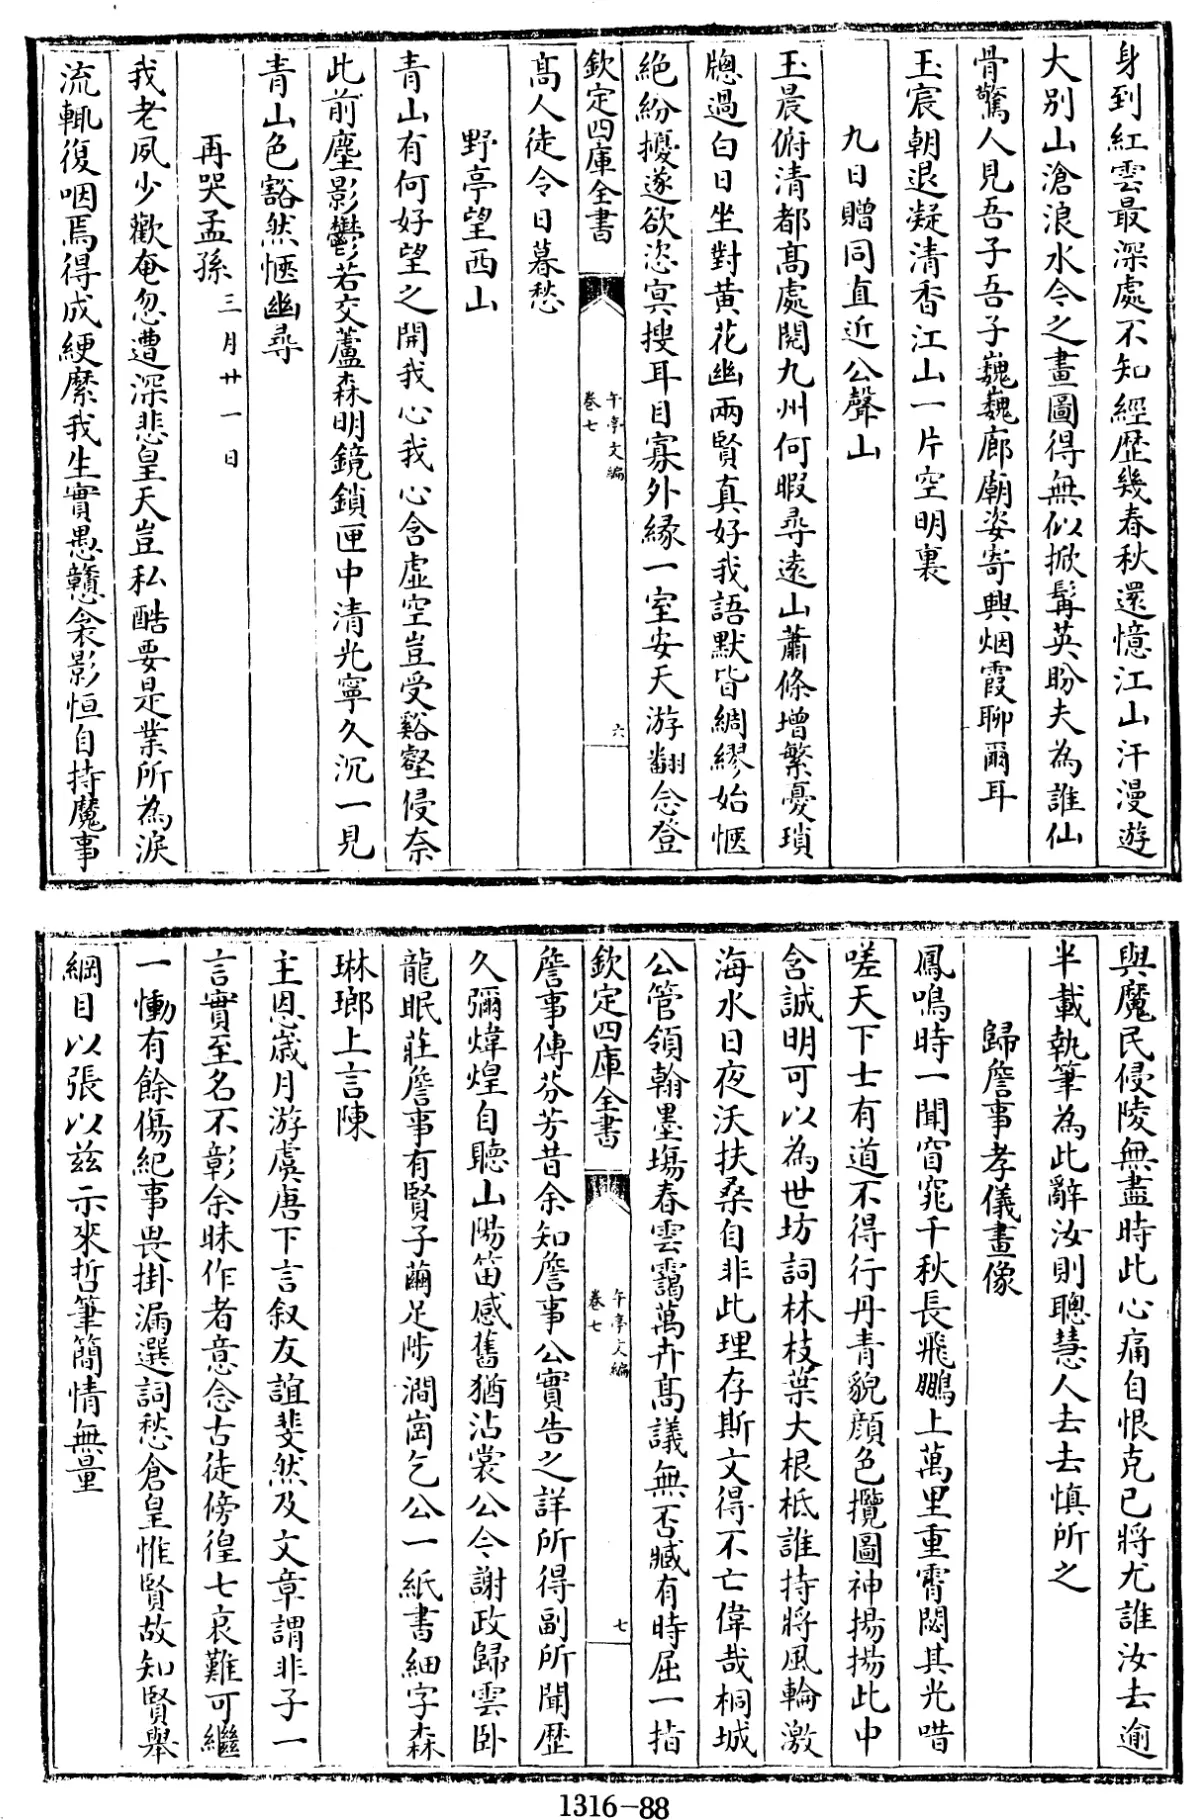 身到紅雲最深處不知經歴幾春秋還憶江山汗漫遊
大别山滄浪水今之畫圖得無似掀髯英盼夫為誰仙
骨驚人見吾子吾子巍巍廊廟姿寄興烟霞聊爾耳
玉宸朝退凝清香江山一片空明裏
九日贈同直近公聲山
玉晨俯清都髙處閱九州何暇尋遠山蕭條增繁憂瑣
牕過白日坐對黄花幽兩賢真好我語默皆綢繆始愜
絶紛擾遂欲恣冥搜耳目寡外縁一室安天游翻念登
欽定四庫全書
午亭文編
卷七
六
髙人徒令日暮愁
野亭望西山
青山有何好望之開我心我心含虛空豈受谿壑侵奈
此前塵影鬱若交蘆森明鏡鎖匣中清光寧久沉一見
青山色豁然愜幽尋
再哭孟孫三月廿一日
我老夙少歡奄忽遭深悲皇天豈私酷要是業所為淚
流輒復咽焉得成綆縻我生實愚戇衾影恒自持魔事
與魔民侵陵無盡時此心痛自恨克已將尤誰汝去逾
半載執筆為此辭汝則聰慧人去去慎所之
歸詹事孝儀畫像
鳳鳴時一聞窅窕千秋長飛鵬上萬里重霄閟其光唶
嗟天下士有道不得行丹青貌顔色攬圖神揚揚此中
含誠明可以為世坊詞林枝葉大根柢誰持將風輪激
海水日夜沃扶桑自非此理存斯文得不亡偉哉桐城
公管領翰墨塲春雲靄萬卉髙議無否臧有時屈一指
欽定四庫全書
午亭文編
卷七
七
詹事傳芬芳昔余知詹事公實告之詳所得副所聞歴
久彌煒煌自聽山陽笛感舊猶沾裳公今謝政歸雲卧
龍眠莊詹事有賢子繭足陟澗崗乞公一紙書細字森
琳瑯上言陳
主恩歳月游虞唐下言叙友誼斐然及文章謂非子一
言實至名不彰余昧作者意念古徒傍徨七哀難可繼
一慟有餘傷紀事畏掛漏選詞愁倉皇惟賢故知賢舉
綱目以張以兹示來哲筆簡情無量
1316-88